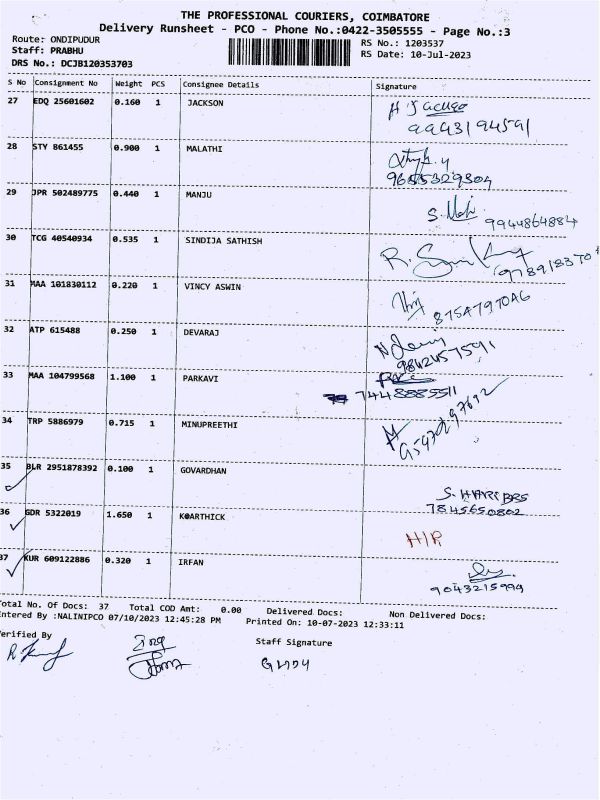 THE PROFESSIONAL COURIERS, COIMBATORE
Delivery Runsheet - PCO - Phone No.:0422-3505555 - Page No.:3
Route: ONDIPUDUR
RS No.: 1203537
Staff: PRABHU
RS Date: 10-Jul-2023
DRS No.: DCJB120353703
S No Consignment No Weight PCS Consignee Details Signature
27 EDQ 25601602 0.160 1 JACKSON
9443194591
28 STY 861455 0.900 1 MALATHI
9655329304
29 JPR 502489775 0.440 1 MANJU
9944864884
30 TCG 40540934 0.535 1 SINDIJA SATHISH
31 MAA 101830112 0.220 1 VINCY ASWIN
8754797046
32 ATP 615488 0.250 1 DEVARAJ
9842457591
33 MAA 104799568 1.100 1 PARKAVI
7448885511
34 TRP 5886979 0.715 1 MINUPREETHI
35 BLR 2951878392 0.100 1 GOVARDHAN
7845650802
36 GDR 5322019 1.650 1 KOARTHICK
H/R
37 KUR 609122886 0.320 1 IRFAN
9043215999
Total No. Of Docs: 37 Total COD Amt: 0.00 Delivered Docs: Non Delivered Docs:
Entered By :NALINIPCO 07/10/2023 12:45:28 PM Printed On: 10-07-2023 12:33:11
Verified By
Staff Signature